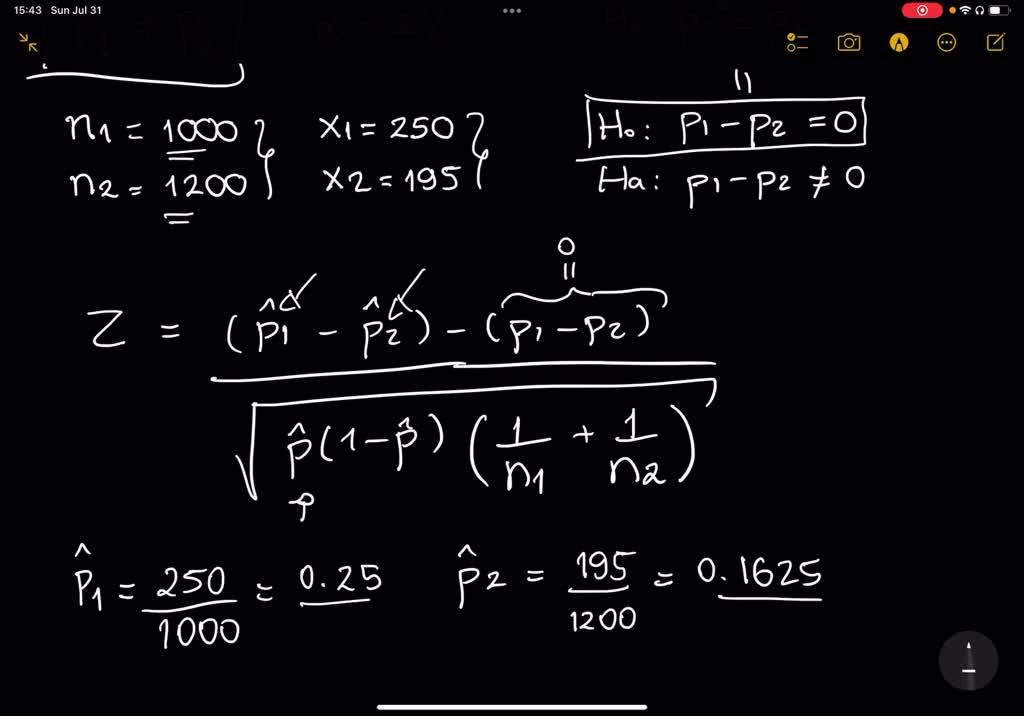 15:43 Sun Jul 31
n1 = 1000 x1 = 250 H0: p1 - p2 = 0
n2 = 1200 x2 = 195 Ha: p1 - p2 ≠ 0
0
=
Z = (p̂1 - p̂2) - (p1 - p2)
√ p̂(1 - p̂) (1/n1 + 1/n2)
p̂1 = 250/1000 = 0.25 p̂2 = 195/1200 = 0.1625